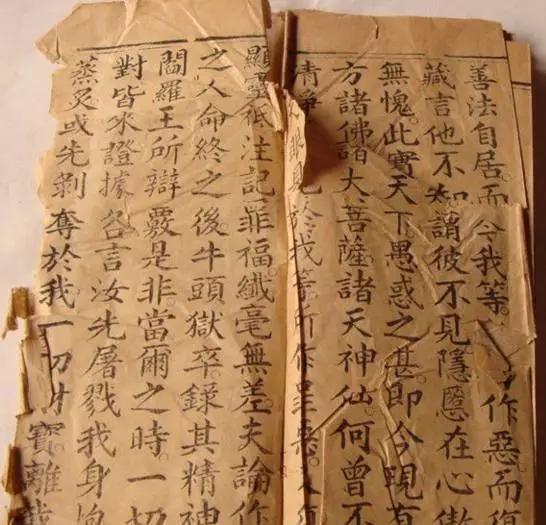 善法自居而今我等作惡而復
藏言他不知謂彼不見隱慝在心傲
無愧此實天下愚惑之甚即今現有
方諸佛諸大菩薩諸天神仙何曾不
清淨眼見於我等所作罪惡又
顯靈祇注記罪福纖毫無差夫論作
之人命終之後牛頭獄卒錄其精神
閻羅王所辯覈是非當爾之時一切
對皆來證據各言汝先屠戮我身炮
蒸炙或先剝奪於我一切財寶離我